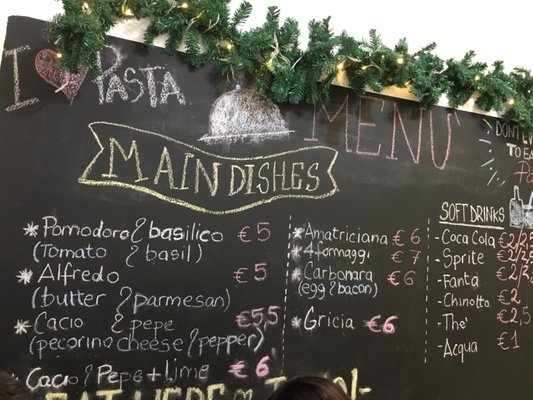 I ❤ PASTA
MENÙ
MAIN DISHES
* Pomodoro & basilico €5
(Tomato & basil)
* Alfredo €5
(butter & parmesan)
* Cacio & pepe €5,5
(pecorino cheese & pepper)
Cacio & Pepe + Lime €6
* Amatriciana €6
* 4 formaggi €7
* Carbonara €6
(egg & bacon)
* Gricia €6
DON'T
TO EA
SOFT DRINKS
- Coca Cola €2/2,5
- Sprite €2/2,5
- Fanta €2/2,5
- Chinotto €2
- The' €2,5
- Acqua €1
EAT HERE